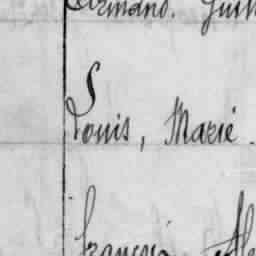 Armand. Guil
Louis, Marie.
François Al